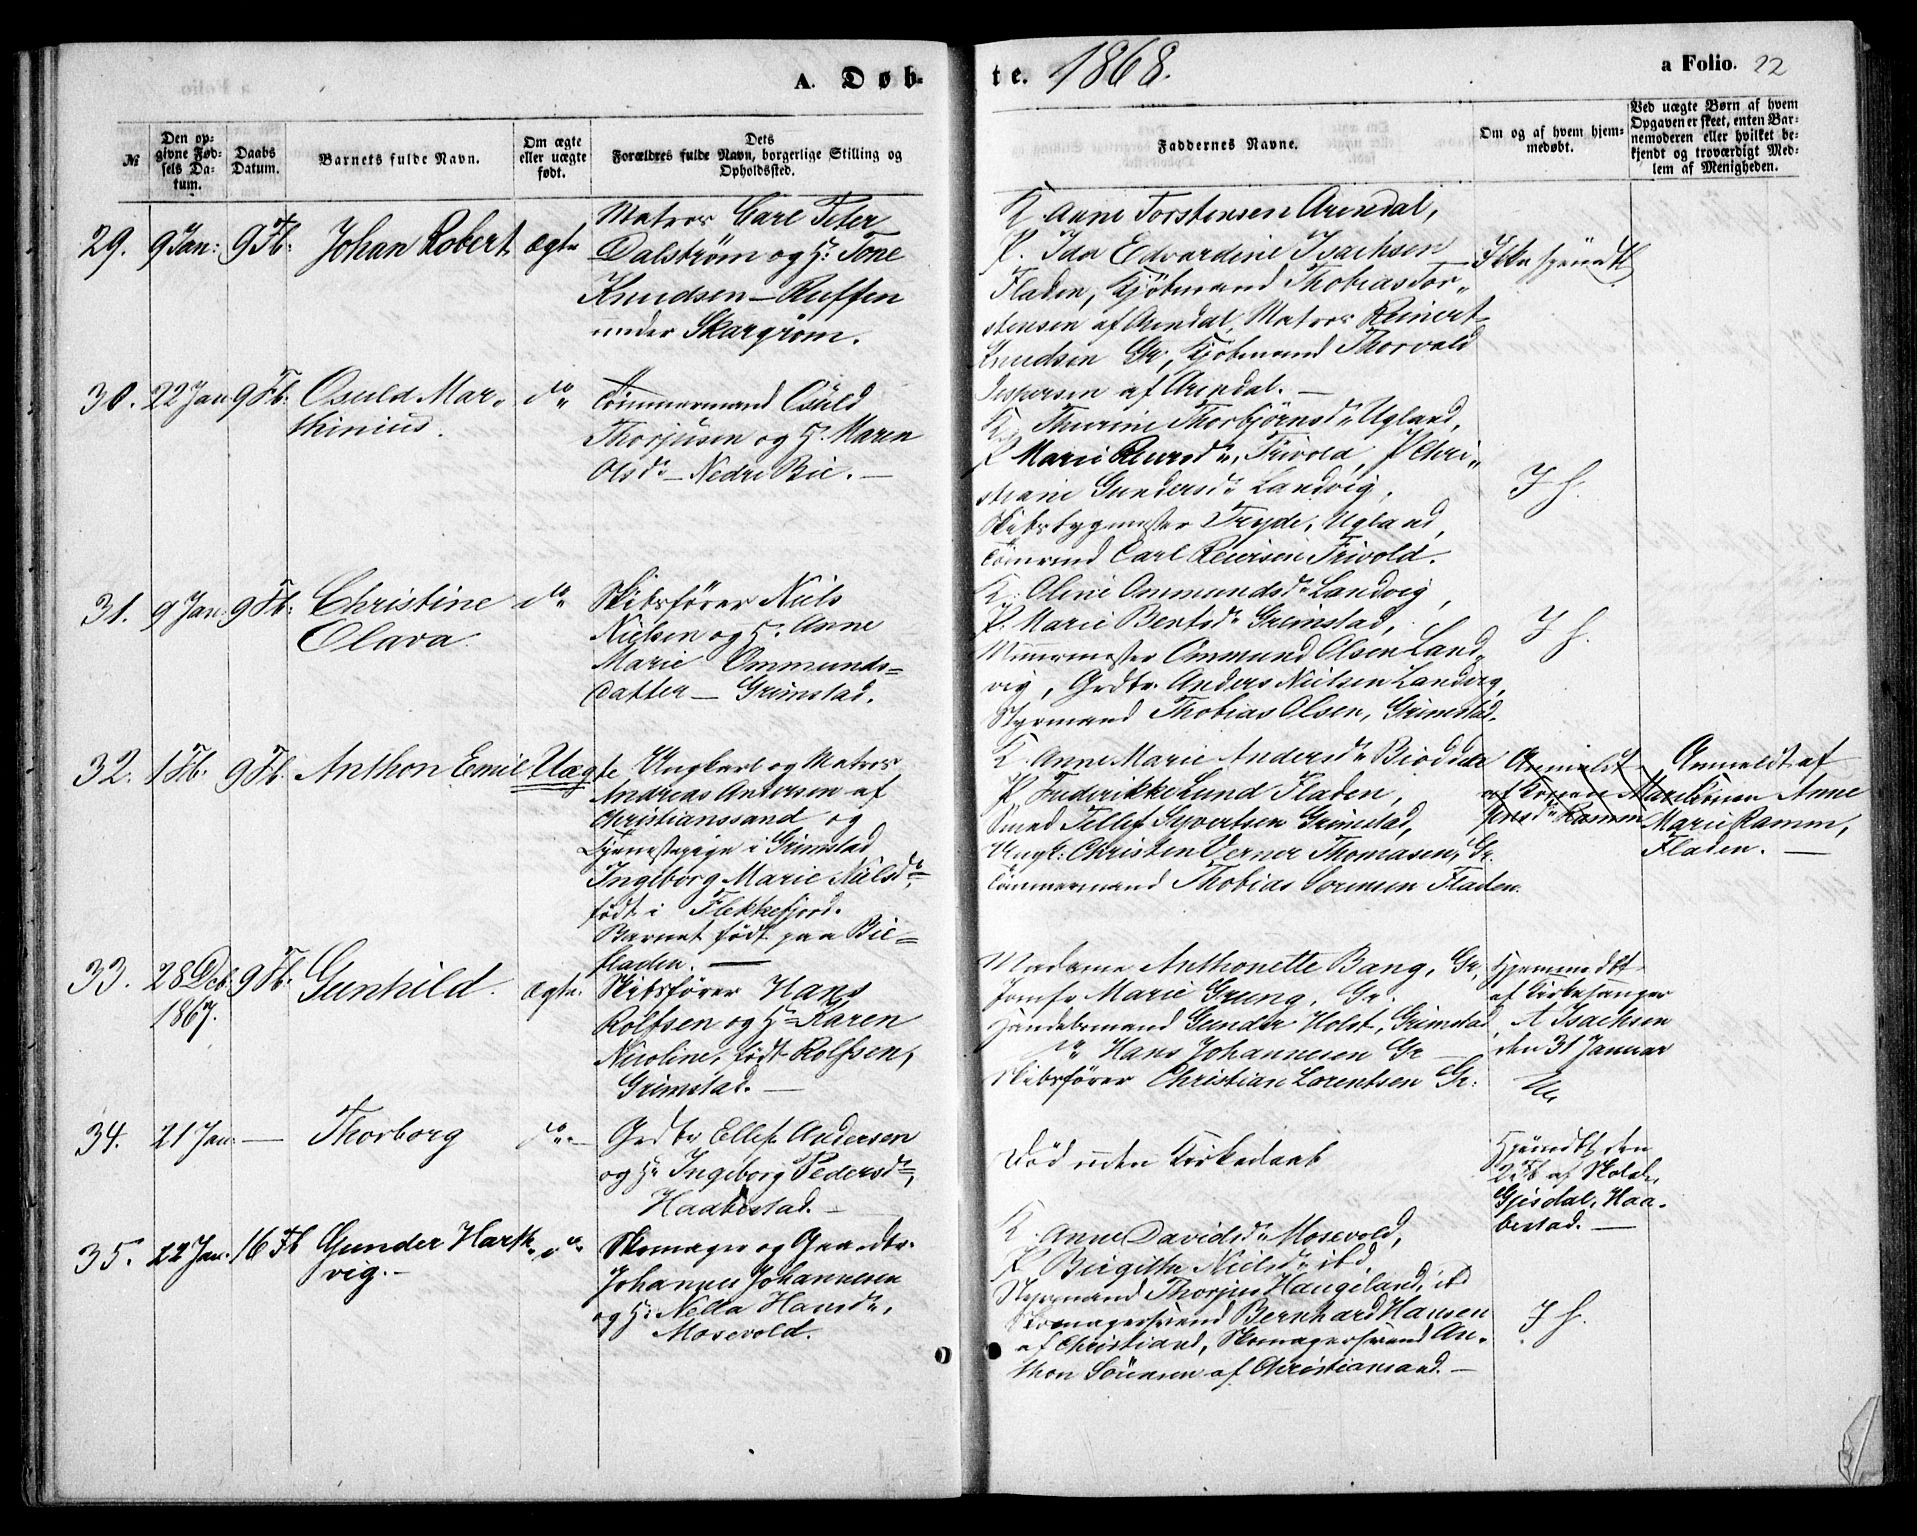 A. Døb-
te. 1868.
a Folio. 22
№
Den op-
givne Fød-
sels Da-
tum.
Daabs
Datum.
Barnets fulde Navn.
Om ægte
eller uægte
født.
Dets
Forældres fulde Navn, borgerlige Stilling og
Opholdssted.
Faddernes Navne.
Om og af hvem hjem-
medøbt.
Ved uægte Børn af hvem
Opgaven er skeet, enten Bar-
nemoderen eller hvilket be-
kjendt og troværdigt Med-
lem af Menigheden.
29. 9 Jan: 9 Fb: Johan Robert ægte
Matros Carl Peter
Dalstrøm og H: Tone
Knudsen – Ruffen
under Skargrøm.
K Anne Torstensen Arendal,
P. Ida Edvardine Isachsen
Fladen, Kjøbmand Thobias Tor-
stensen af Arendal, Matros Reinert
Knudsen Gr, Kjøbmand Thorvald
Jespersen af Arendal. –
Ikke hjemdt
30. 22 Jan 9 Fb. Osuld Mar-
thinius.
do
Tømmermand Osuld
Thorjusen og H. Maren
Olsdr – Nedre Bie. –
K. Thurine Thorbjørnsdr Ugland,
P Marie Reiersdr, Trivold, P Chri-
stiane Gundersdr Landvig,
Skibsbygmester Tryde, Ugland,
Tømmnd Carl Reiersen Trivold.
I h.
31. 9 Jan: 9 Fb: Christine
Olava.
do
Skibsfører Niels
Nielsen og H: Anne
Marie Ommunds-
datter – Grimstad.
K. Oline Ommundsdr Landvig,
P. Marie Bentsdr Grimstad,
Muurmester Ommund Olsen Land-
vig, Grdbr. Anders Nielsen Landvig,
Styrmand Thobias Olsen, Grimstad.
I h.
32. 1 Fb. 9 Fb. Anthon Emil Uægte
Ungkarl og Matros
Andreas Andersen af
Christianssand og
Tjenestepige i Grimstad
Ingeborg Marie Nielsdr,
født i Flekkefjord.
Barnet født paa Bie-
fladen. –
K. Anne Marie Andersdr Biodden
P. Frederikke Lund Fladen,
Smed Tellef Syvertsen Grimstad,
Ungk: Christen Verner Thomasen, Gr.
Tømmermand Thobias Sørensen Fladen.
Anmeldt
Anmeldt af
Anne
Marie Ramm,
Fladen. –
33. 28 Deb. 9 Fb. Gunhild. ægte.
1867.
Skibsfører Hans
Rolfsen og H: Karen
Nicoline, født Rolfsen,
Grimstad. –
Madame Anthonette Bang, Gr,
Jomfr Marie Grung, Gr.
Handelsmand Gunder Holst, Grimstad,
do Hans Johannesen Gr
Skibsfører Christian Lorentsen Gr:
Hjemmedbt
af Kirkesanger
A Isachsen
den 31 Januar
34. 21 Jan: – Thorborg do –
Grdbr Ellef Andersen
og H: Ingeborg Pedersdr,
Haabestad. –
Død uden Kirkedaab
Hjemdbt den
2 Fb af Skolel.
Gjesdal, Haa-
bestad. –
35. 22 Jan: 16 Fb Gunder Hartk-
vig. –
do
Skomager og Gaardbr.
Johannes Johannesen
og H: Nella Hansdr,
Mosevold.
K. Anne Davidsdr Mosevold,
P. Birgithe Nielsdr ibd,
Styrmand Thorjus Haugeland, ibd
Skomagersvend Bernhard Hansen
af Christiansd, Skomagersvend An-
thon Sörensen af Christiansand. –
I h.